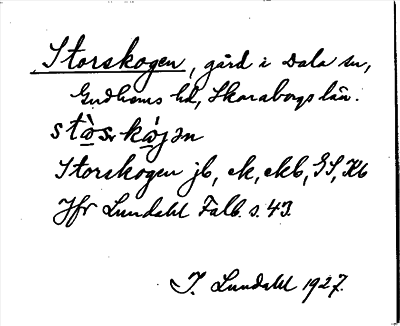 Storskogen, gård i Dala sn,
Gudhems hd, Skaraborgs län.
stò̱sr kò̱jən
Storskogen jb, ek, ekb, GS, Kb
Jfr Lundahl Falb. s. 43.
I. Lundahl 1927.